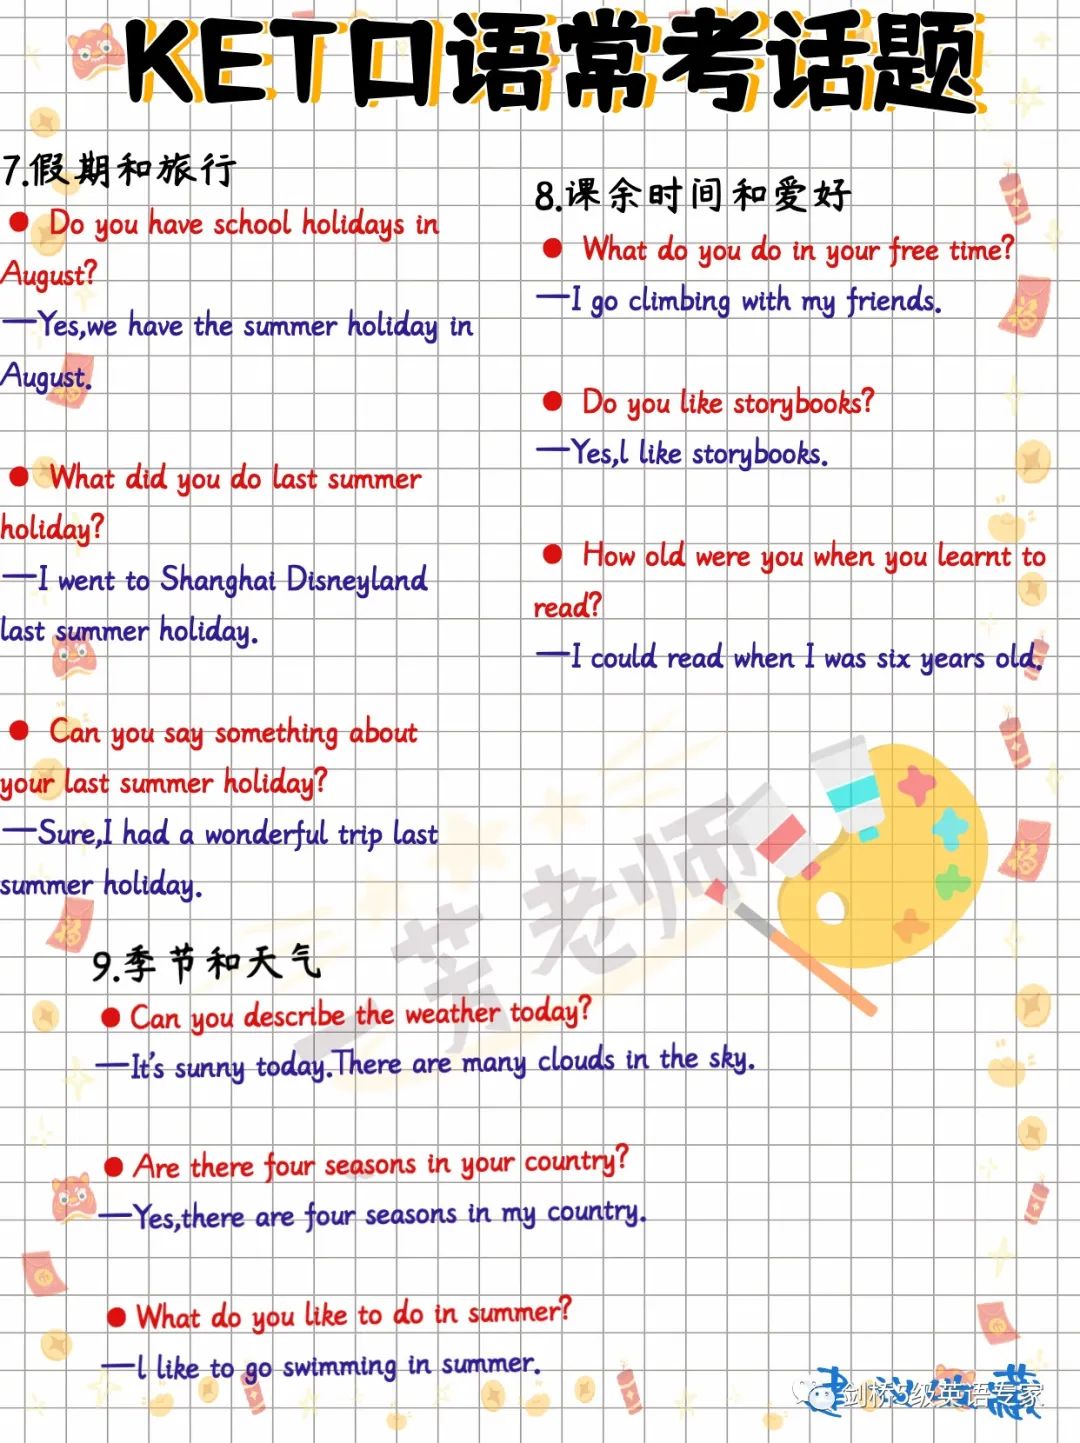 KET口语常考话题
7.假期和旅行
● Do you have school holidays in
August?
—Yes,we have the summer holiday in
August.
● What did you do last summer
holiday?
—I went to Shanghai Disneyland
last summer holiday.
● Can you say something about
your last summer holiday?
—Sure,I had a wonderful trip last
summer holiday.
8.课余时间和爱好
● What do you do in your free time?
—I go climbing with my friends.
● Do you like storybooks?
—Yes,l like storybooks.
● How old were you when you learnt to
read?
—I could read when I was six years old.
9.季节和天气
● Can you describe the weather today?
—It's sunny today.There are many clouds in the sky.
● Are there four seasons in your country?
—Yes,there are four seasons in my country.
● What do you like to do in summer?
—l like to go swimming in summer.
一芳老师
剑桥5级英语专家